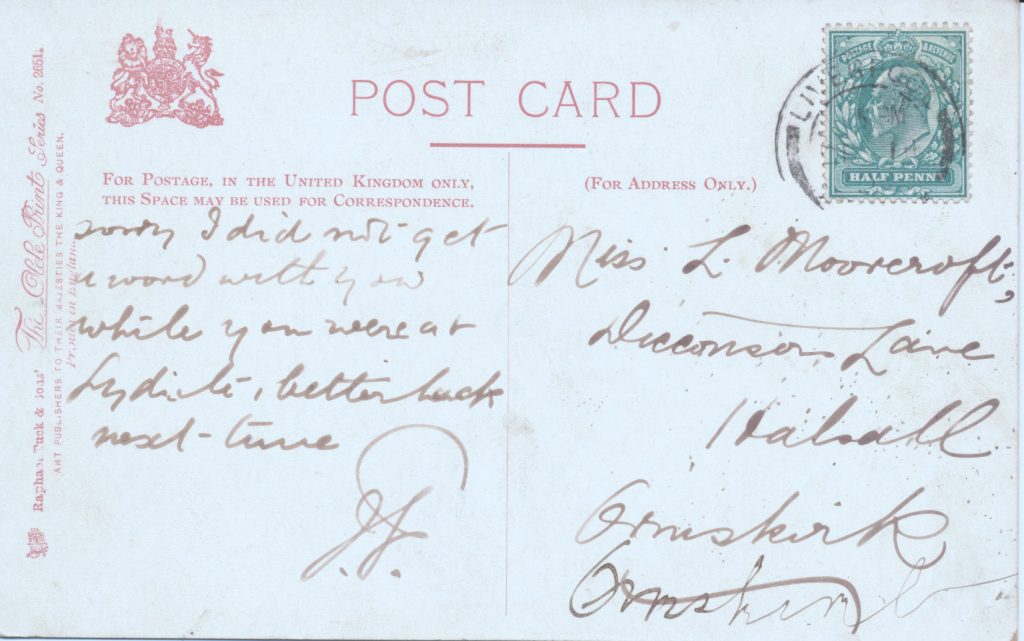 POST CARD
FOR POSTAGE, IN THE UNITED KINGDOM ONLY,
THIS SPACE MAY BE USED FOR CORRESPONDENCE.
(FOR ADDRESS ONLY.)
sorry I did not get
a word with you
while you were at
Lydiate, better luck
next time
J.J.
Miss L. Moorcroft,
Dicconson Lane
Halsall
Ormskirk
Ormskirk
POSTAGE & REVENUE
HALF PENNY
LIVER
Raphael Tuck & Sons' The Olde Print Series No. 2651.
ART PUBLISHERS TO THEIR MAJESTIES THE KING & QUEEN.
Printed in England.